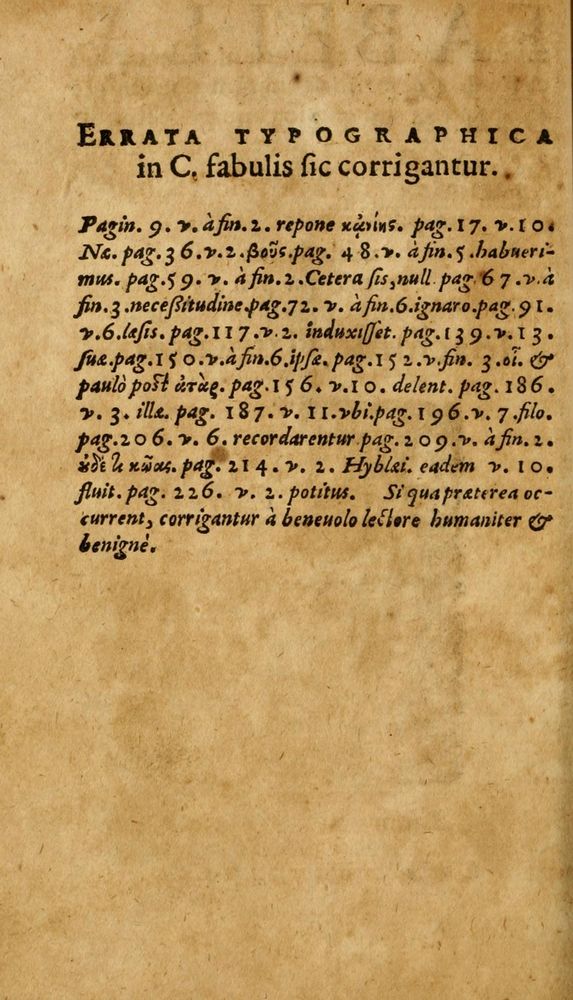 ERRATA TYPOGRAPHICA
in C. fabulis ſic corrigantur.
Pagin. 9. v. à fin. 2. repone pag. 17. v. 10.
Næ. pag. 36. v. 2. βοῦς. pag. 48. v. à fin. 5. habueri-
mus. pag. 59. v. à fin. 2. Cetera ſis, null. pag. 67. v. à
fin. 3. neceßitudine. pag. 72. v. à fin. 6. ignaro. pag. 91.
v. 6. læſis. pag. 117. v. 2. induxiſſet. pag. 139. v. 13.
ſuæ. pag. 150. v. à fin. 6. ipſæ. pag. 152. v. fin. 3. οἷ. &
paulò poſt ἀτὰρ. pag. 156. v. 10. delent. pag. 186.
v. 3. illæ. pag. 187. v. 11. vbi. pag. 196. v. 7. filo.
pag. 206. v. 6. recordarentur. pag. 209. v. à fin. 2.
pag. 214. v. 2. Hyblæi. eadem v. 10.
fluit. pag. 226. v. 2. potitus. Si qua præterea oc-
current, corrigantur à beneuolo lectore humaniter &
benignè.